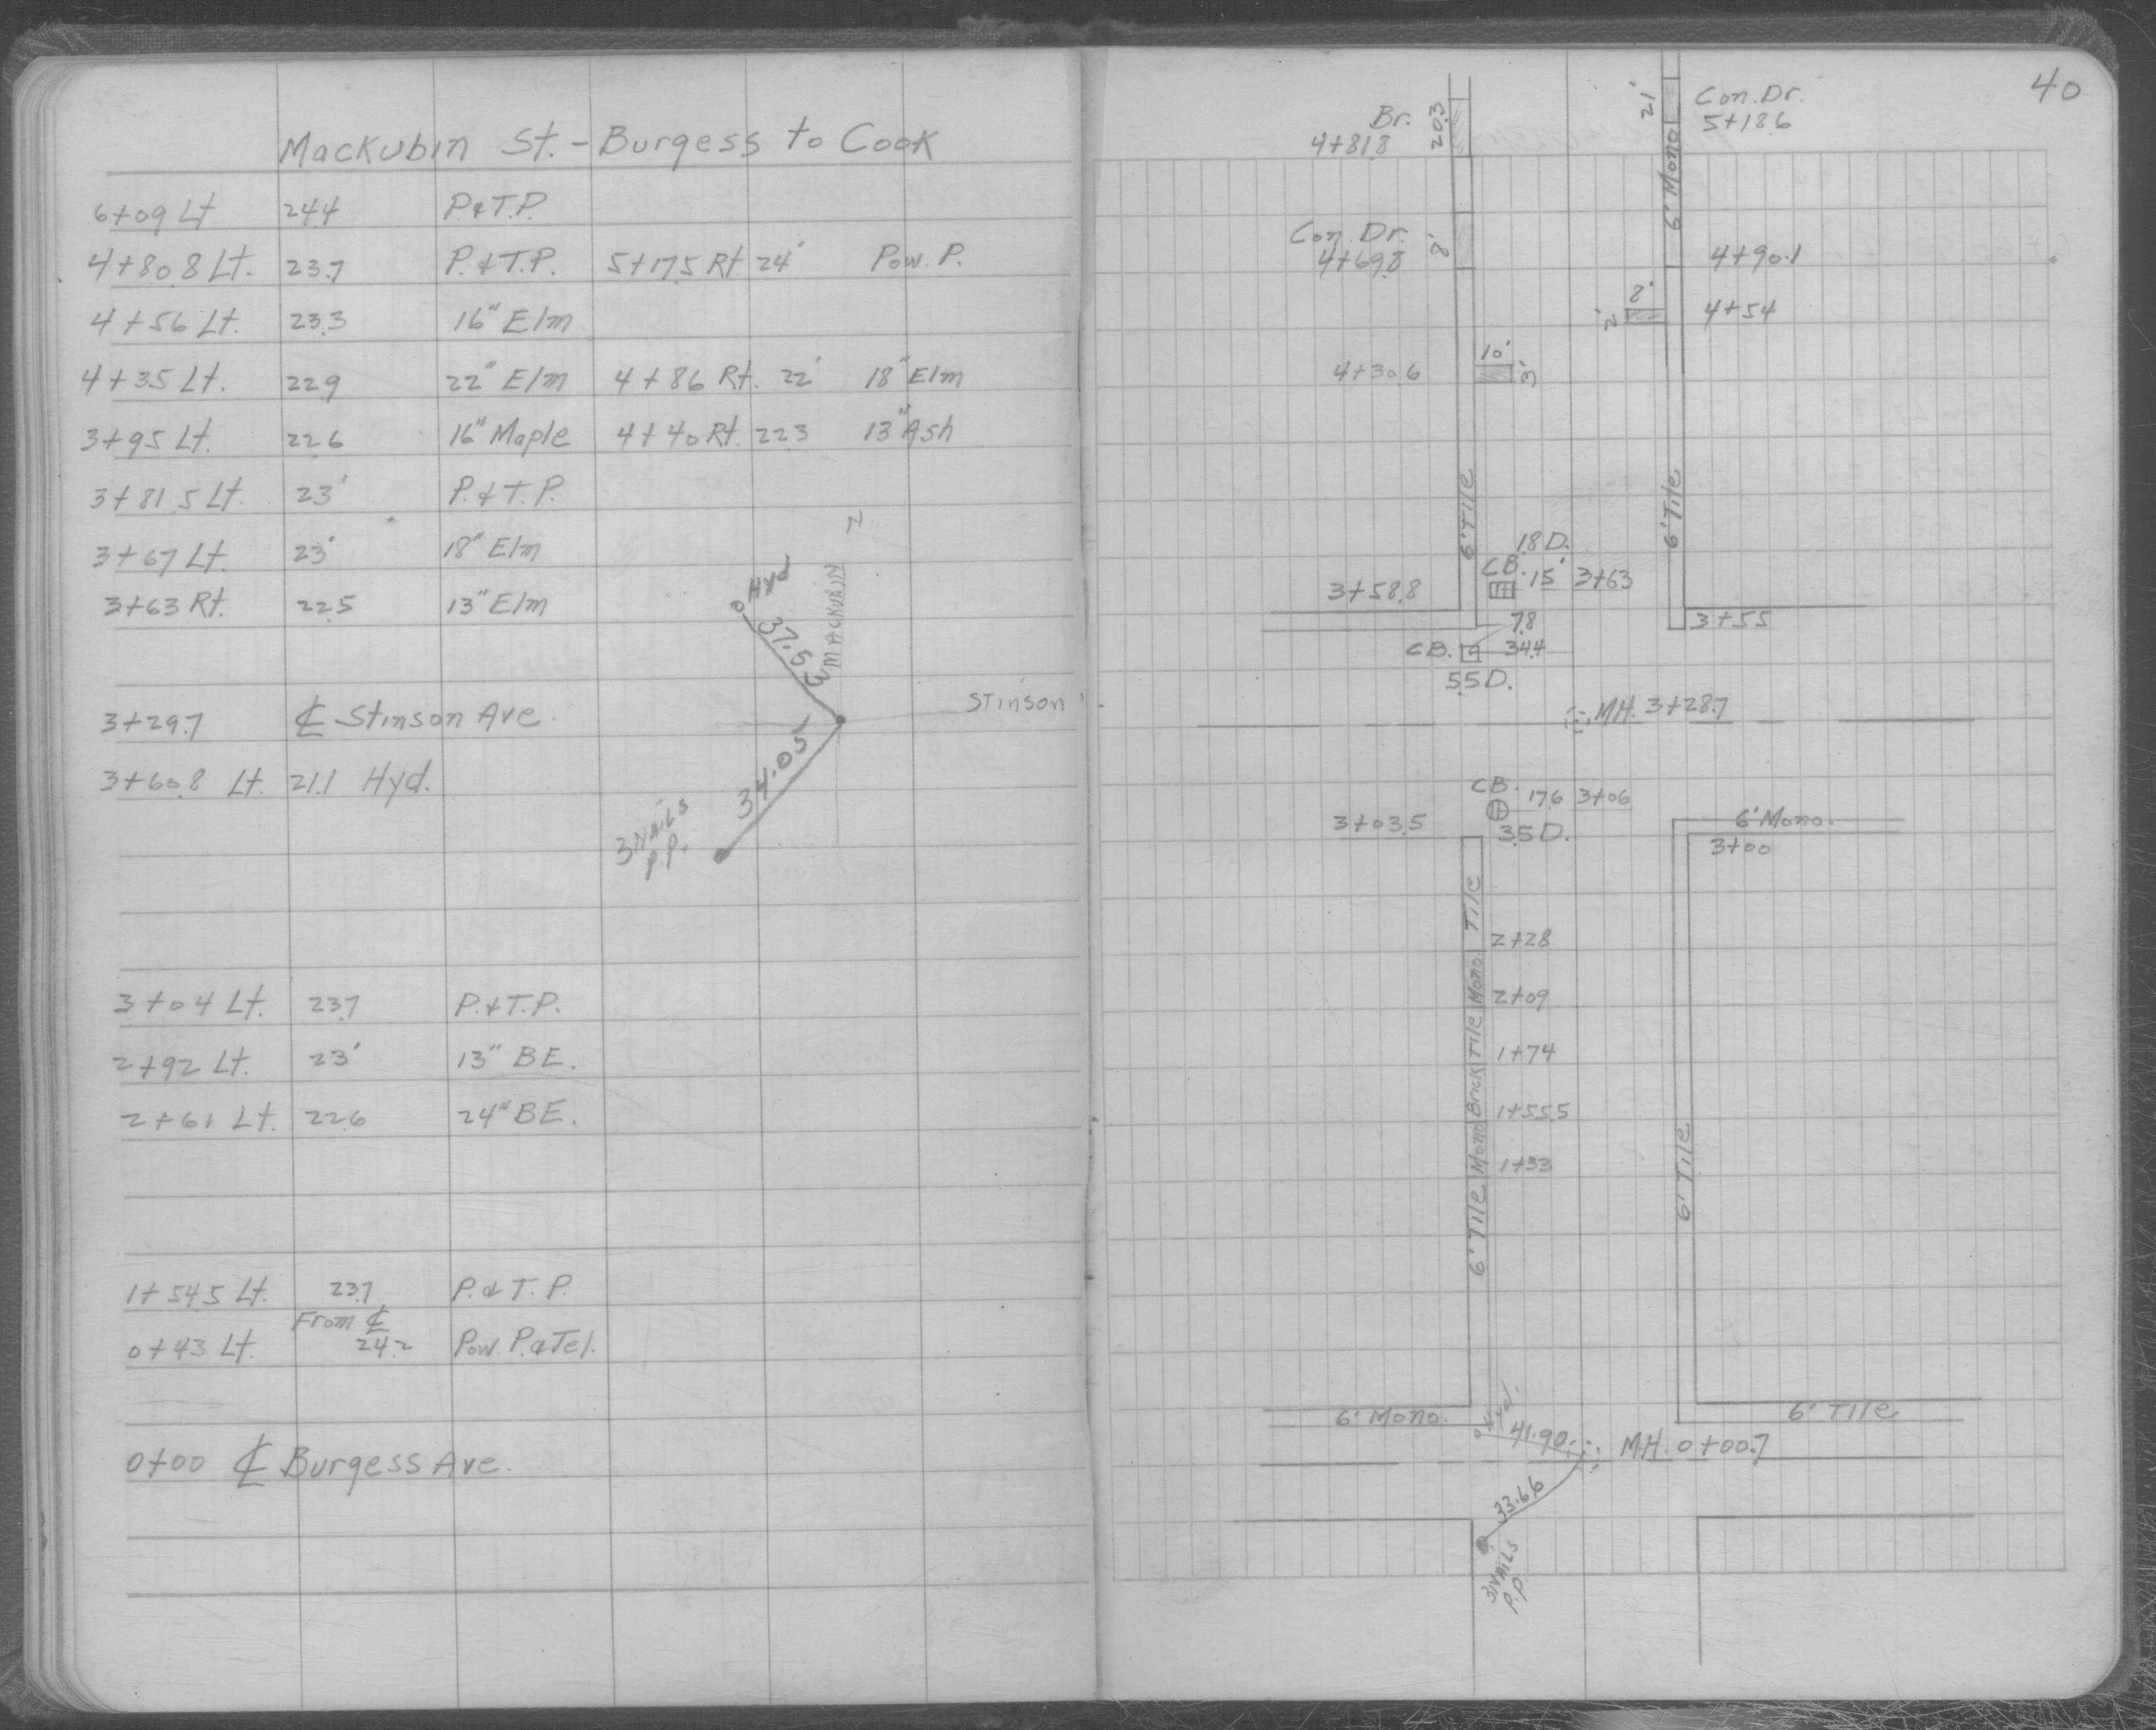 Mackubin St. - Burgess to Cook
6+09 Lt 24.4 P.&T.P.
4+80.8 Lt. 23.7 P.&T.P. 5+17.5 Rt 24' Pow. P.
4+56 Lt. 23.3 16" Elm
4+35 Lt. 22.9 22" Elm 4+86 Rt. 22' 18" Elm
3+95 Lt. 22.6 16" Maple 4+40 Rt. 22.3 13" Ash
3+81.5 Lt. 23' P.&T.P.
3+67 Lt. 23' 18" Elm
3+63 Rt. 22.5 13" Elm
N
Hyd
37.53
MACKUBIN
3+29.7 ℄ Stinson Ave.
Stinson
3+60.8 Lt. 21.1 Hyd.
34.05
3 NAILS
P.P.
3+04 Lt. 23.7 P.&T.P.
2+92 Lt. 23' 13" BE.
2+61 Lt. 22.6 24" BE.
1+54.5 Lt. 23.7 P.&T.P.
From ℄
0+43 Lt. 24.2 Pow. P.&Tel.
0+00 ℄ Burgess Ave.
40
Br.
4+81.8
20.3
21'
Con. Dr.
5+18.6
6' Mono
Con. Dr.
4+69.8
8'
4+90.1
8'
2'
4+54
4+30.6
10'
3'
6' Tile
6' Tile
1.8 D.
CB. 15' 3+63
3+58.8
7.8
3+55
CB. 34.4
5.5 D.
MH. 3+28.7
CB. 17.6 3+06
3+03.5
3.5 D.
6' Mono.
3+00
Tile
2+28
Mono
2+09
Tile
1+74
Brick
1+55.5
Mono
1+33
6' Tile
6' Tile
6' Mono.
Hyd.
41.90
6' Tile
M.H. 0+00.7
33.66
3 NAILS
P.P.